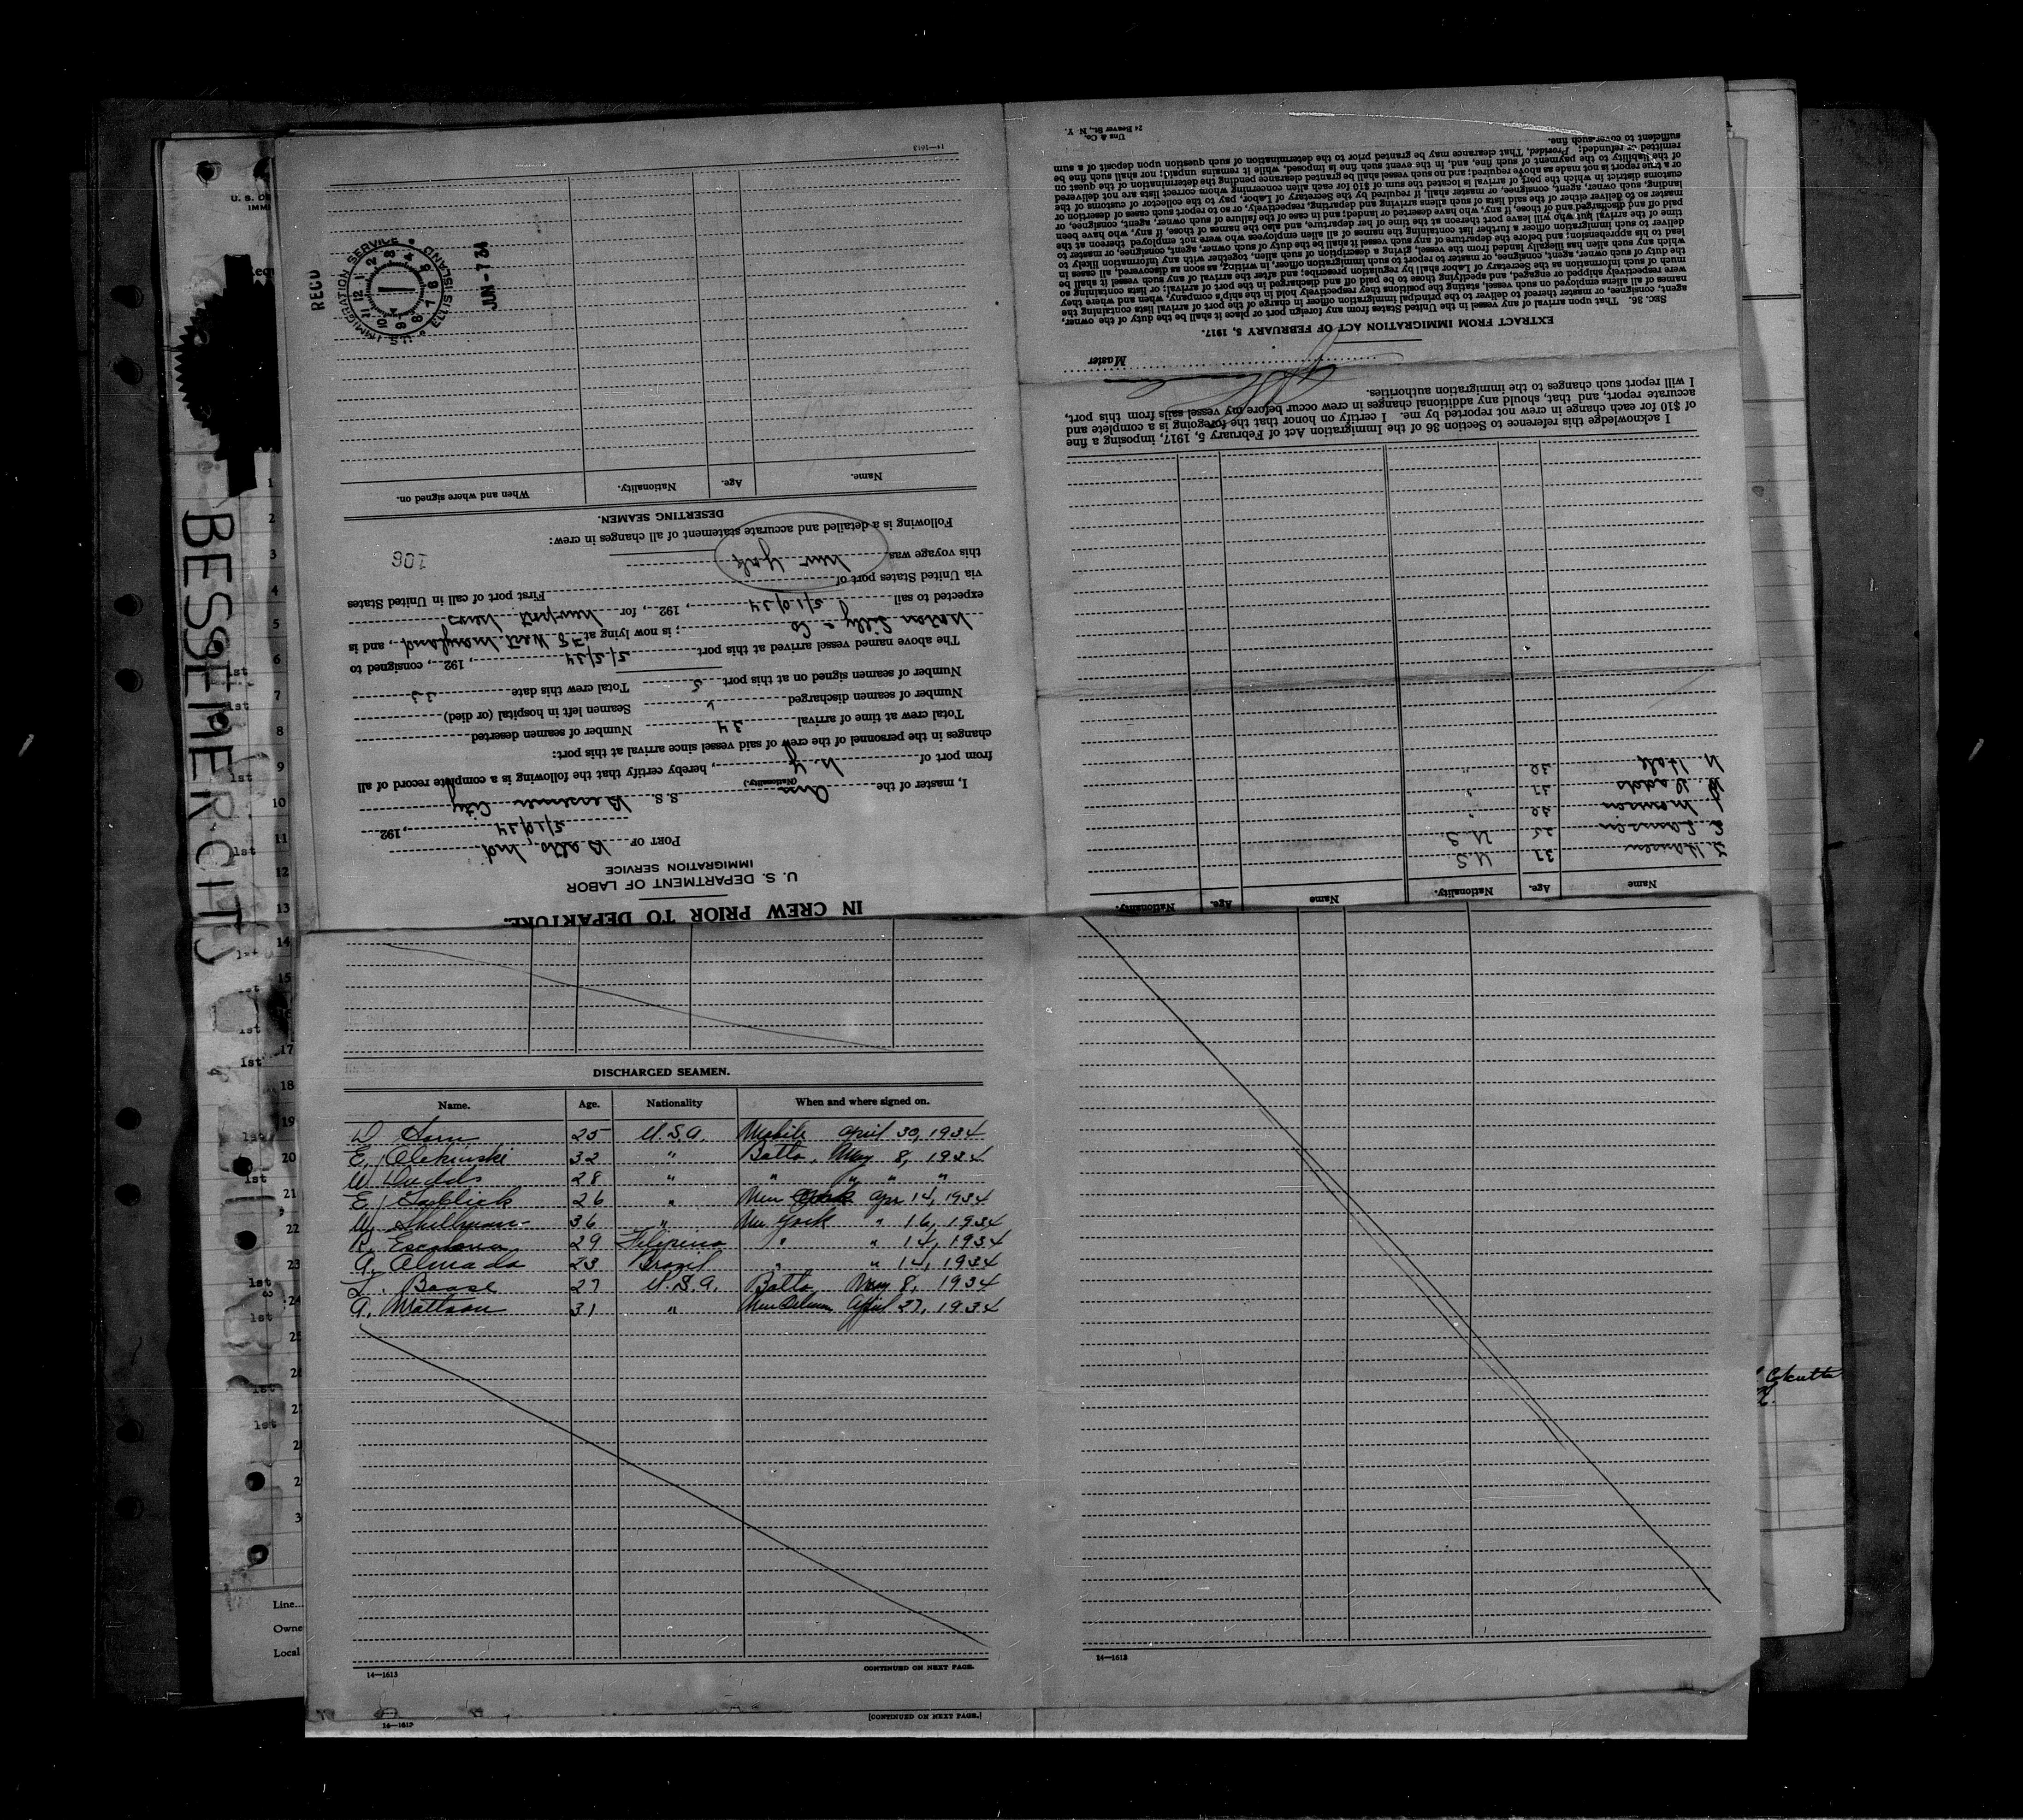 BESSEMER CITY
IN CREW PRIOR TO DEPARTURE.
U. S. DEPARTMENT OF LABOR
IMMIGRATION SERVICE
PORT OF Balto, Md.
5/10/34, 192
I, master of the S. S. Bessemer City
(Nationality)
from port of N. Y., hereby certify that the following is a complete record of all
changes in the personnel of the crew of said vessel since arrival at this port:
Total crew at time of arrival 34 Number of seamen deserted
Number of seamen discharged Seamen left in hospital (or died)
Number of seamen signed on at this port 5 Total crew this date 33
The above named vessel arrived at this port 5/5/34, 192, consigned to
; is now lying at West Maryland, and is
expected to sail 5/10/34, 192, for Newport News.
via United States port of First port of call in United States
this voyage was New York
106
Following is a detailed and accurate statement of all changes in crew:
DESERTING SEAMEN.
Name. Age. Nationality. When and where signed on.
RECD JUN - 7 34
U.S. IMMIGRATION SERVICE ELLIS ISLAND
14—1613
Name Age. Nationality. Name Age. Nationality.
37 U.S.
25 U.S.
Manson 30 "
Dadds 27 "
Hale 30 "
I acknowledge this reference to Section 36 of the Immigration Act of February 5, 1917, imposing a fine
of $10 for each change in crew not reported by me. I certify on honor that the foregoing is a complete and
accurate report, and that, should any additional changes in crew occur before my vessel sails from this port,
I will report such changes to the immigration authorities.
Master
EXTRACT FROM IMMIGRATION ACT OF FEBRUARY 5, 1917.
SEC. 36. That upon arrival of any vessel in the United States from any foreign port or place it shall be the duty of the owner,
agent, consignee, or master thereof to deliver to the principal immigration officer in charge of the port of arrival lists containing the
names of all aliens employed on such vessel, stating the positions they respectively hold in the ship's company, when and where they
were respectively shipped or engaged, and specifying those to be paid off and discharged in the port of arrival; or lists containing so
much of such information as the Secretary of Labor shall by regulation prescribe; and after the arrival of any such vessel it shall be
the duty of such owner, agent, consignee, or master to report to such immigration officer, in writing, as soon as discovered, all cases in
which any such alien has illegally landed from the vessel, giving a description of such alien, together with any information likely to
lead to his apprehension; and before the departure of any such vessel it shall be the duty of such owner, agent, consignee, or master to
deliver to such immigration officer a further list containing the names of all alien employees who were not employed thereon at the
time of the arrival but who will leave port thereon at the time of her departure, and also the names of those, if any, who have been
paid off and discharged and of those, if any, who have deserted or landed; and in case of the failure of such owner, agent, consignee, or
master so to deliver either of the said lists of such aliens arriving and departing, respectively, or so to report such cases of desertion or
landing, such owner, agent, consignee, or master shall, if required by the Secretary of Labor, pay to the collector of customs of the
customs district in which the port of arrival is located the sum of $10 for each alien concerning whom correct lists are not delivered
or a true report is not made as above required; and no such vessel shall be granted clearance pending the determination of the question
of the liability to the payment of such fine, and, in the event such fine is imposed, while it remains unpaid; nor shall such fine be
remitted or refunded; Provided, That clearance may be granted prior to the determination of such question upon deposit of a sum
sufficient to cover such fine.
24 Beaver St., N. Y.
DISCHARGED SEAMEN.
Name. Age. Nationality When and where signed on.
D Horn 25 U.S.A. Mobile April 30, 1934
E. Olekinski 32 " Balto. May 8, 1934
W. Dadds 28 " " " " "
E. 26 " New Apr 14, 1934
W. Shellman 36 " New York " 16, 1934
R. Escalona 29 Filipino " " 14, 1934
A. Almada 23 Brazil " " 14, 1934
L. Baase 27 U.S.A. Balto May 8, 1934
A. Mattson 31 " New Orleans April 27, 1934
14—1613 CONTINUED ON NEXT PAGE.
14—1613
[CONTINUED ON NEXT PAGE.]
Calcutta
Line
Owne
Local